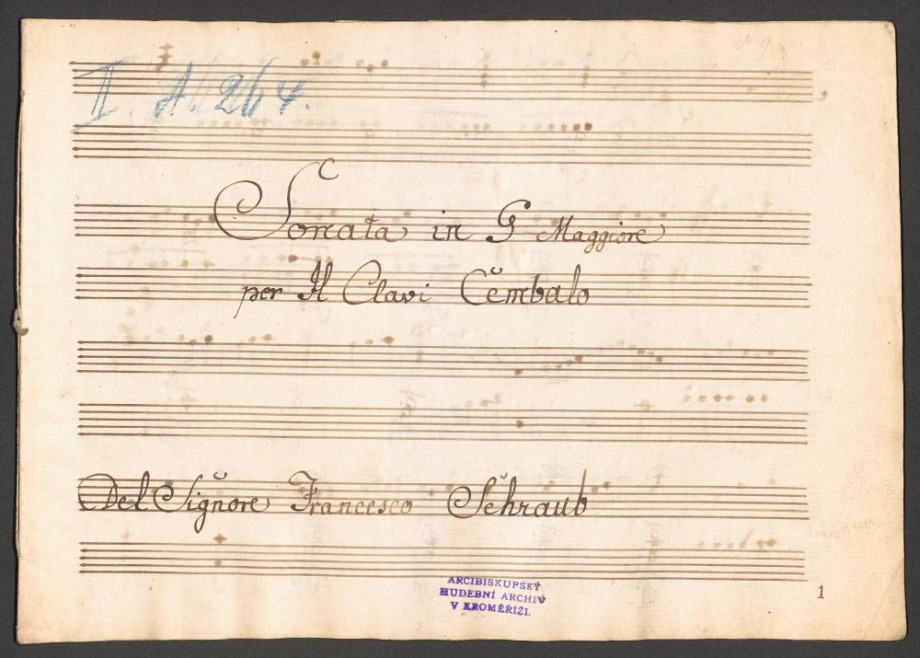 II. A. 264.
Sonata in G Maggiore
per Il Clavi Cembalo
Del Signore Francesco Schraub
ARCIBISKUPSKÝ
HUDEBNÍ ARCHIV
V KROMĚŘÍŽI.
1